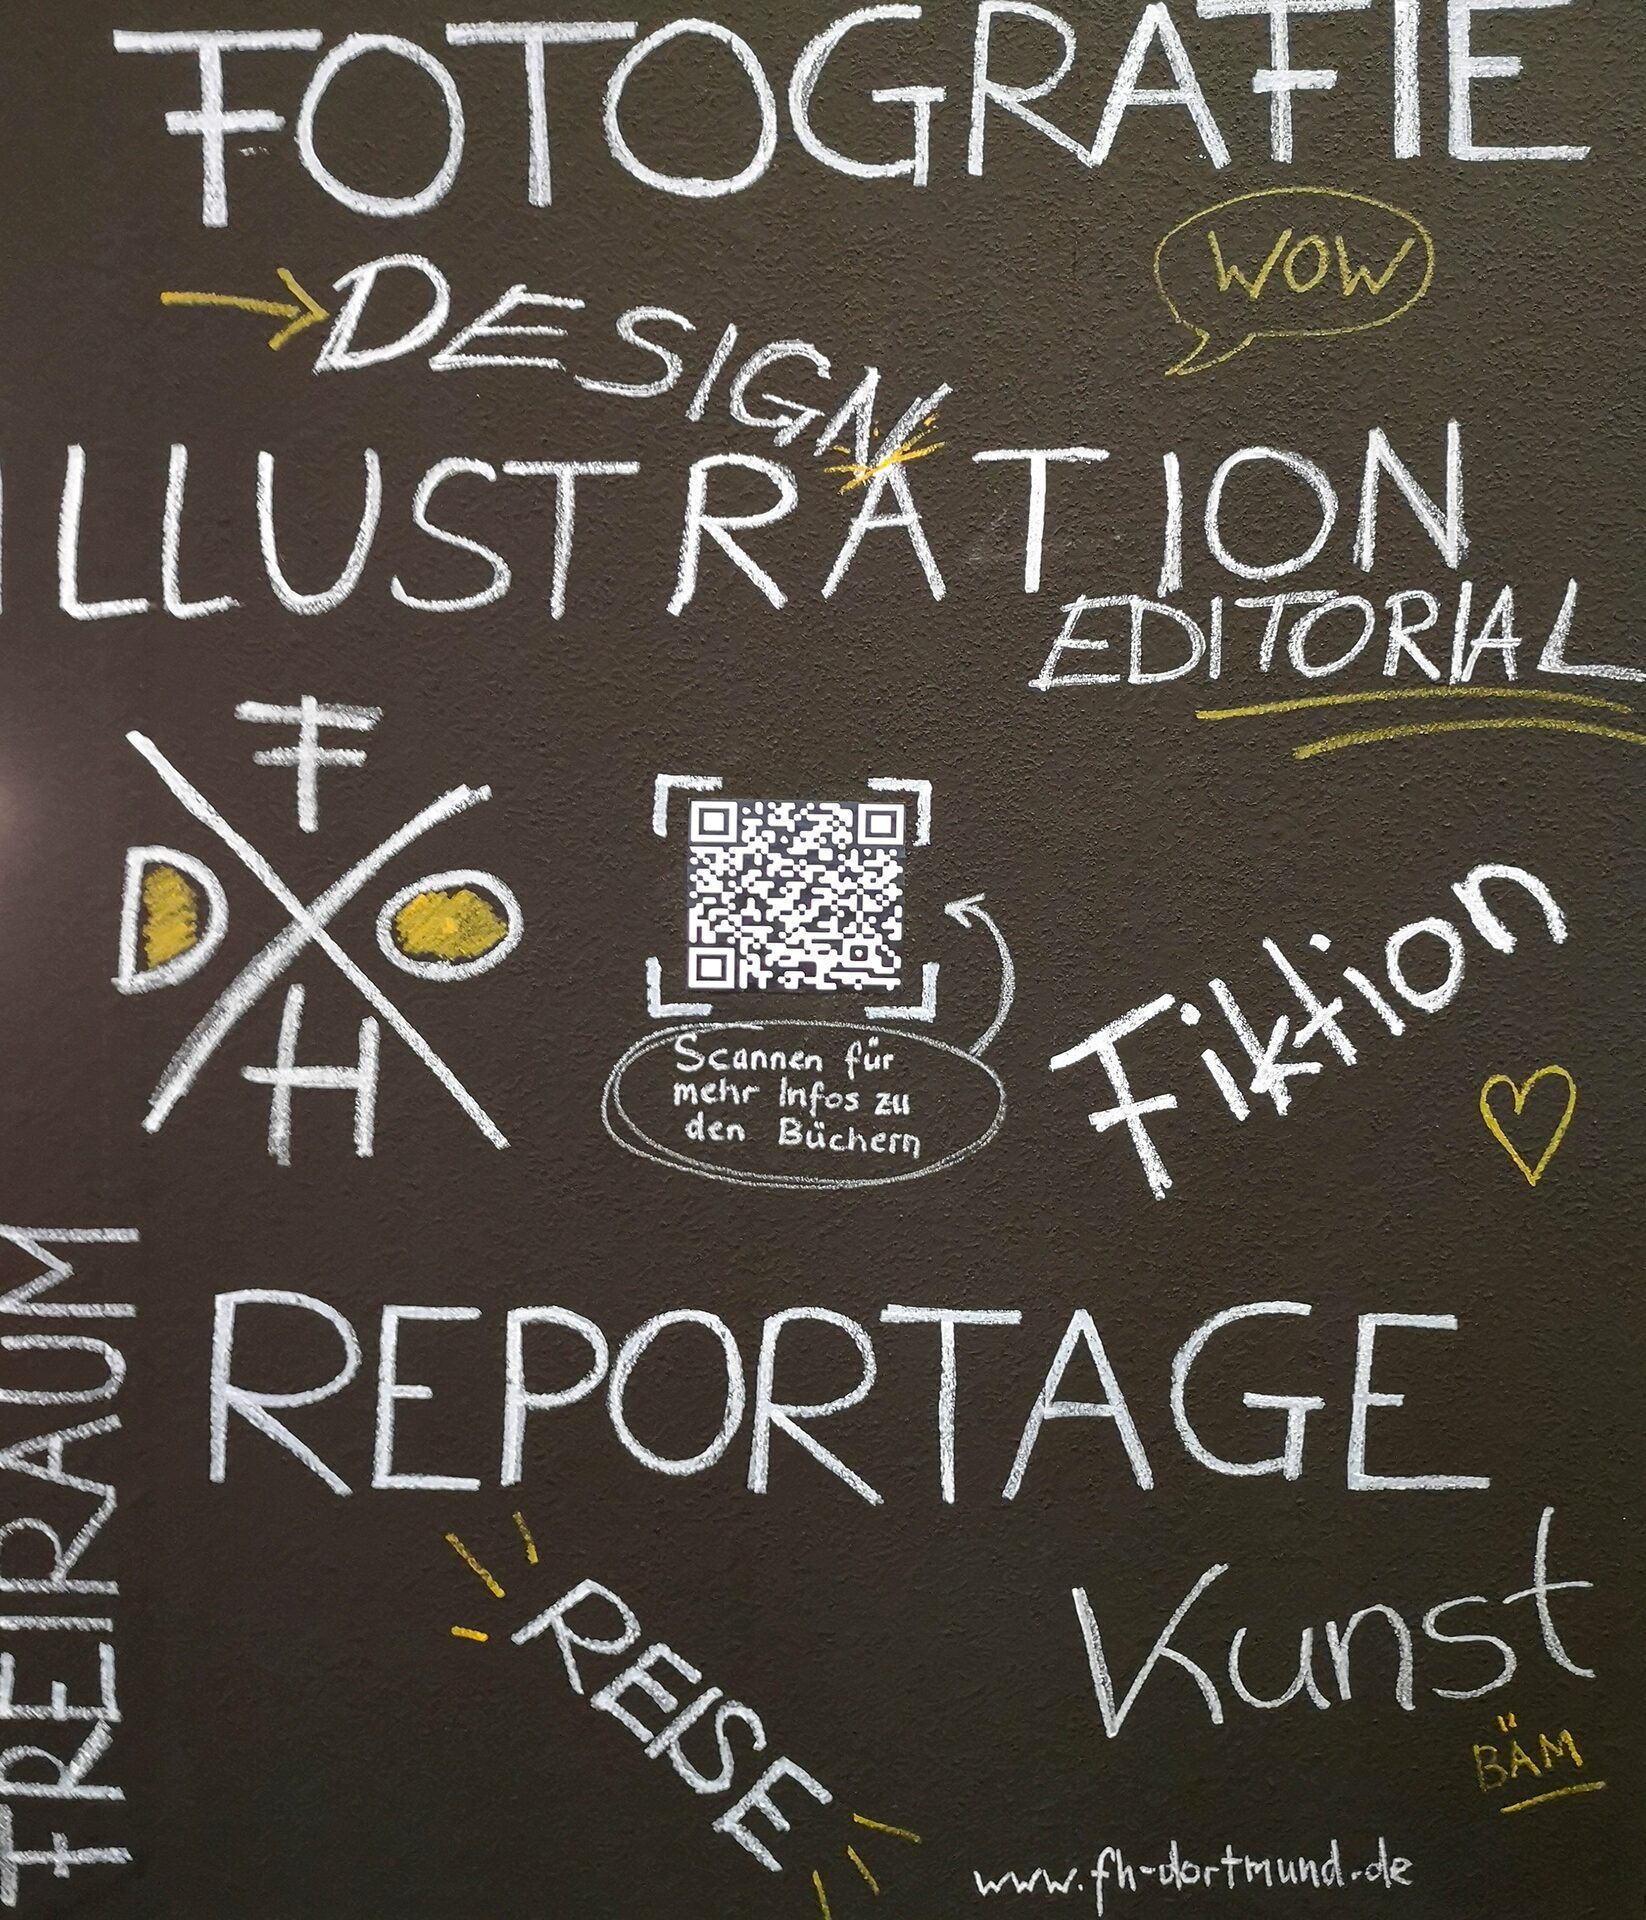 FOTOGRAFIE
WOW
DESIGN
ILLUSTRATION
EDITORIAL
F
D O
H
Scannen für
mehr Infos zu
den Büchern
Fiktion
FREIRAUM
REPORTAGE
REISE
Kunst
BÄM
www.fh-dortmund.de